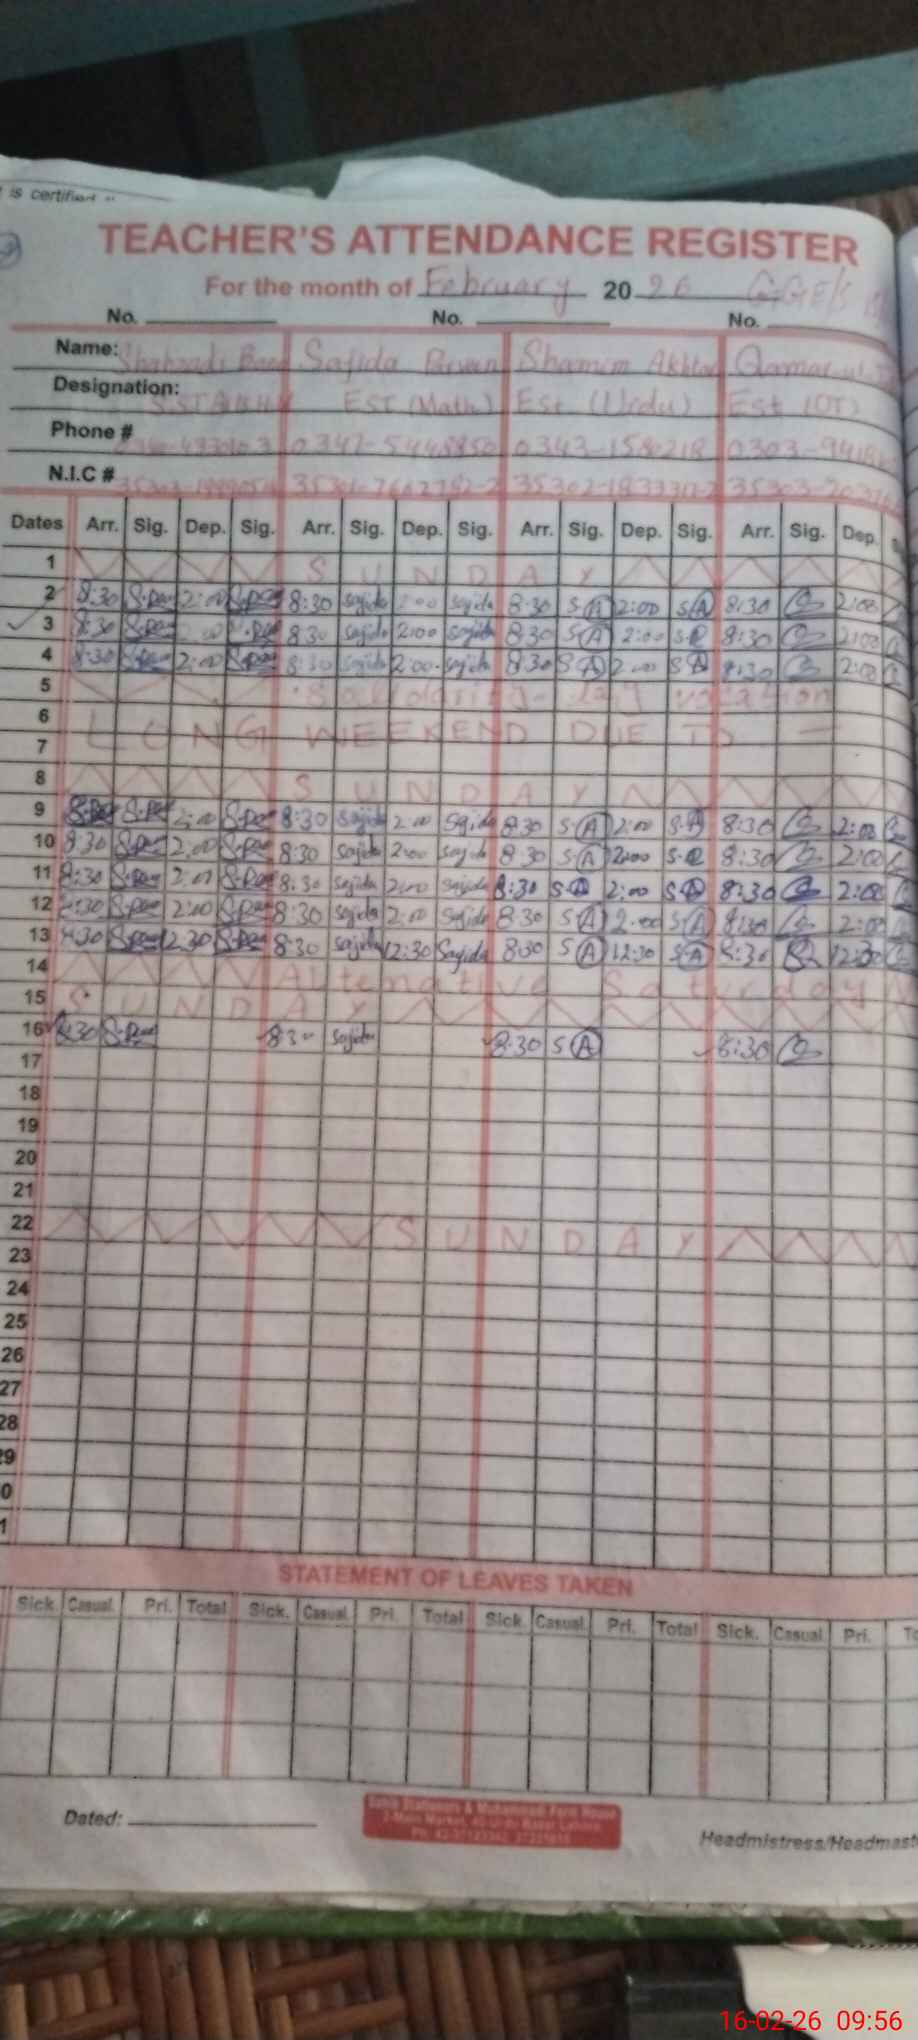 is certified
TEACHER'S ATTENDANCE REGISTER
For the month of February 20 26 GGE/S
No. No. No.
Name: Shahzadi Bano Sajida Parveen Shamim Akhtar Qamar
Designation: EST (Math) Est (Urdu) Est (OT)
Phone # 0343-1580218
N.I.C #
Dates Arr. Sig. Dep. Sig. Arr. Sig. Dep. Sig. Arr. Sig. Dep. Sig. Arr. Sig. Dep.
1 SUNDAY
2 8:30 S.Bano 2:00 S.Bano 8:30 sajida 2:00 sajida 8:30 S(A) 2:00 S(A) 8:30 2:00
3 8:30 S.Bano 2:00 S.Bano 8:30 sajida 2:00 sajida 8:30 S(A) 2:00 8:30 2:00
4 8:30 S.Bano 2:00 S.Bano 8:30 sajida 2:00 sajida 8:30 S(A) 2:00 S(A) 8:30 2:00
5 Solidarity day vacation
6 LONG WEEKEND DUE TO
7
8 SUNDAY
9 S.Bano 2:00 S.Bano 8:30 sajida 2:00 Sajida 8:30 S(A) 2:00 S.A 8:30 2:00
10 8:30 S.Bano 2:00 S.Bano 8:30 sajida 2:00 sajida 8:30 S(A) 2:00 8:30 2:00
11 8:30 S.Bano 2:00 S.Bano 8:30 sajida 2:00 sajida 8:30 S(A) 2:00 S(A) 8:30 2:00
12 8:30 S.Bano 2:00 S.Bano 8:30 sajida 2:00 Sajida 8:30 S(A) 2:00 S(A) 8:30 2:00
13 8:30 S.Bano 12:30 S.Bano 8:30 sajida 12:30 Sajida 8:30 S(A) 12:30 S(A) 8:30 12:30
14 Alternative Saturday
15 SUNDAY
16 8:30 S.Bano 8:30 sajida 8:30 S(A) 8:30
17
18
19
20
21
22 SUNDAY
23
24
25
26
27
28
29
0
1
STATEMENT OF LEAVES TAKEN
Sick. Casual. Pri. Total Sick. Casual. Pri. Total Sick. Casual. Pri. Total Sick. Casual. Pri.
Dated:
Headmistress/Headmast
16-02-26 09:56